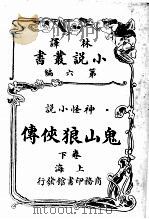 林譯
小說叢書
第六編
神怪小說
鬼山狼俠傳
卷下
上海
商務印書館發行